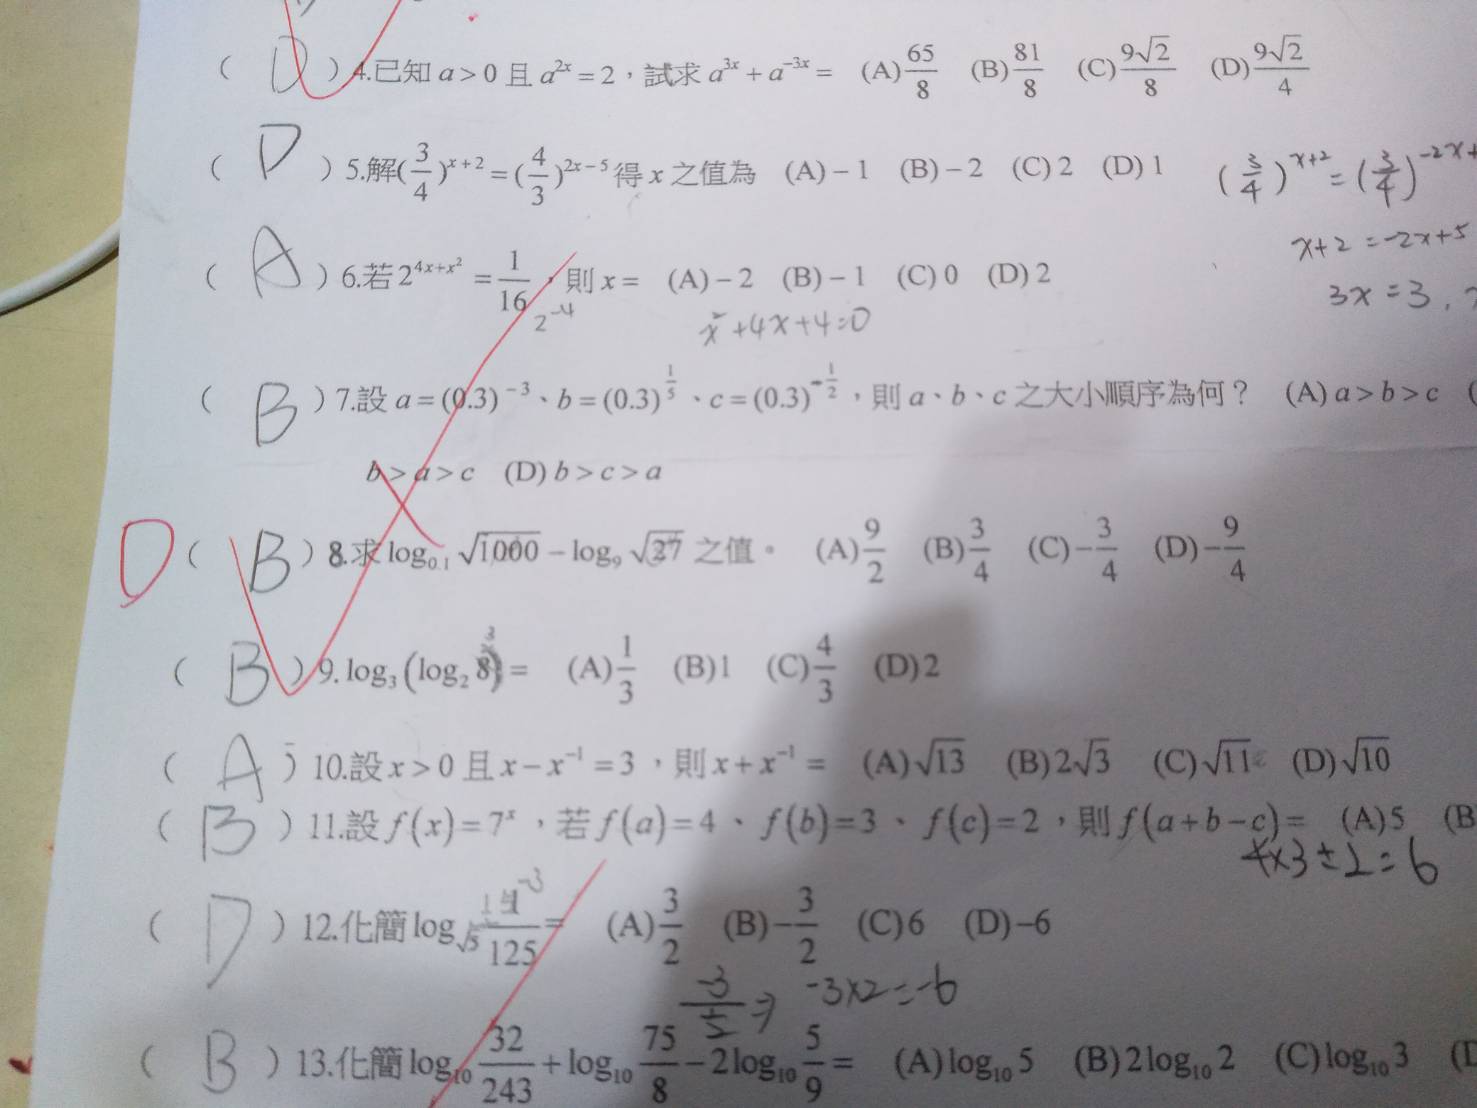 ( D ) 4.已知 a > 0 且 a^{2x} = 2，試求 a^{3x} + a^{-3x} = (A) 65/8 (B) 81/8 (C) 9√2/8 (D) 9√2/4
( D ) 5.解(3/4)^{x+2} = (4/3)^{2x-5} 得 x 之值為 (A) -1 (B) -2 (C) 2 (D) 1
(3/4)^{x+2} = (3/4)^{-2x+
x+2 = -2x+5
3x = 3 ,
( A ) 6.若 2^{4x+x^2} = 1/16，則 x = (A) -2 (B) -1 (C) 0 (D) 2
2^{-4} x^2+4x+4=0
( B ) 7.設 a = (0.3)^{-3}、b = (0.3)^{1/5}、c = (0.3)^{-1/2}，則 a、b、c 之大小順序為何？ (A) a > b > c (
b > a > c (D) b > c > a
D ( B ) 8.求 log_{0.1} √1000 - log_9 √27 之值。 (A) 9/2 (B) 3/4 (C) -3/4 (D) -9/4
( B ) 9. log_3 (log_2 8) = (A) 1/3 (B) 1 (C) 4/3 (D) 2
( A ) 10.設 x > 0 且 x - x^{-1} = 3，則 x + x^{-1} = (A) √13 (B) 2√3 (C) √11 (D) √10
( B ) 11.設 f(x) = 7^x，若 f(a) = 4、f(b) = 3、f(c) = 2，則 f(a + b - c) = (A) 5 (B
4×3÷2=6
( D ) 12.化簡 log_{√5} 1/125 = (A) 3/2 (B) -3/2 (C) 6 (D) -6
-3×2=-6
( B ) 13.化簡 log_{10} 32/243 + log_{10} 75/8 - 2 log_{10} 5/9 = (A) log_{10} 5 (B) 2 log_{10} 2 (C) log_{10} 3 (D